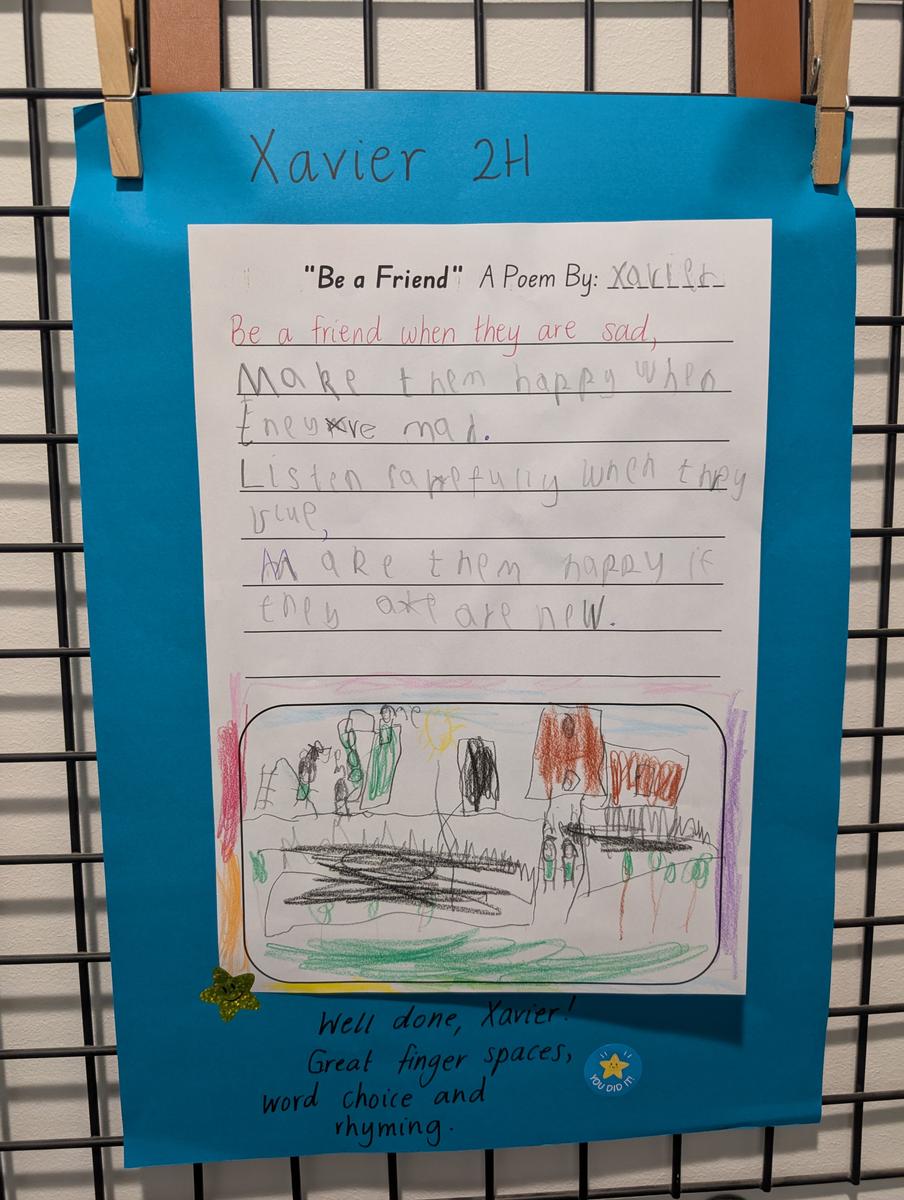 Xavier 2H
"Be a Friend" A Poem By: Xavier
Be a friend when they are sad,
Make them happy when
they're mad.
Listen carefully when they
blue,
Make them happy if
they are are new.
one
Well done, Xavier!
Great finger spaces,
word choice and
rhyming.
YOU DID IT!